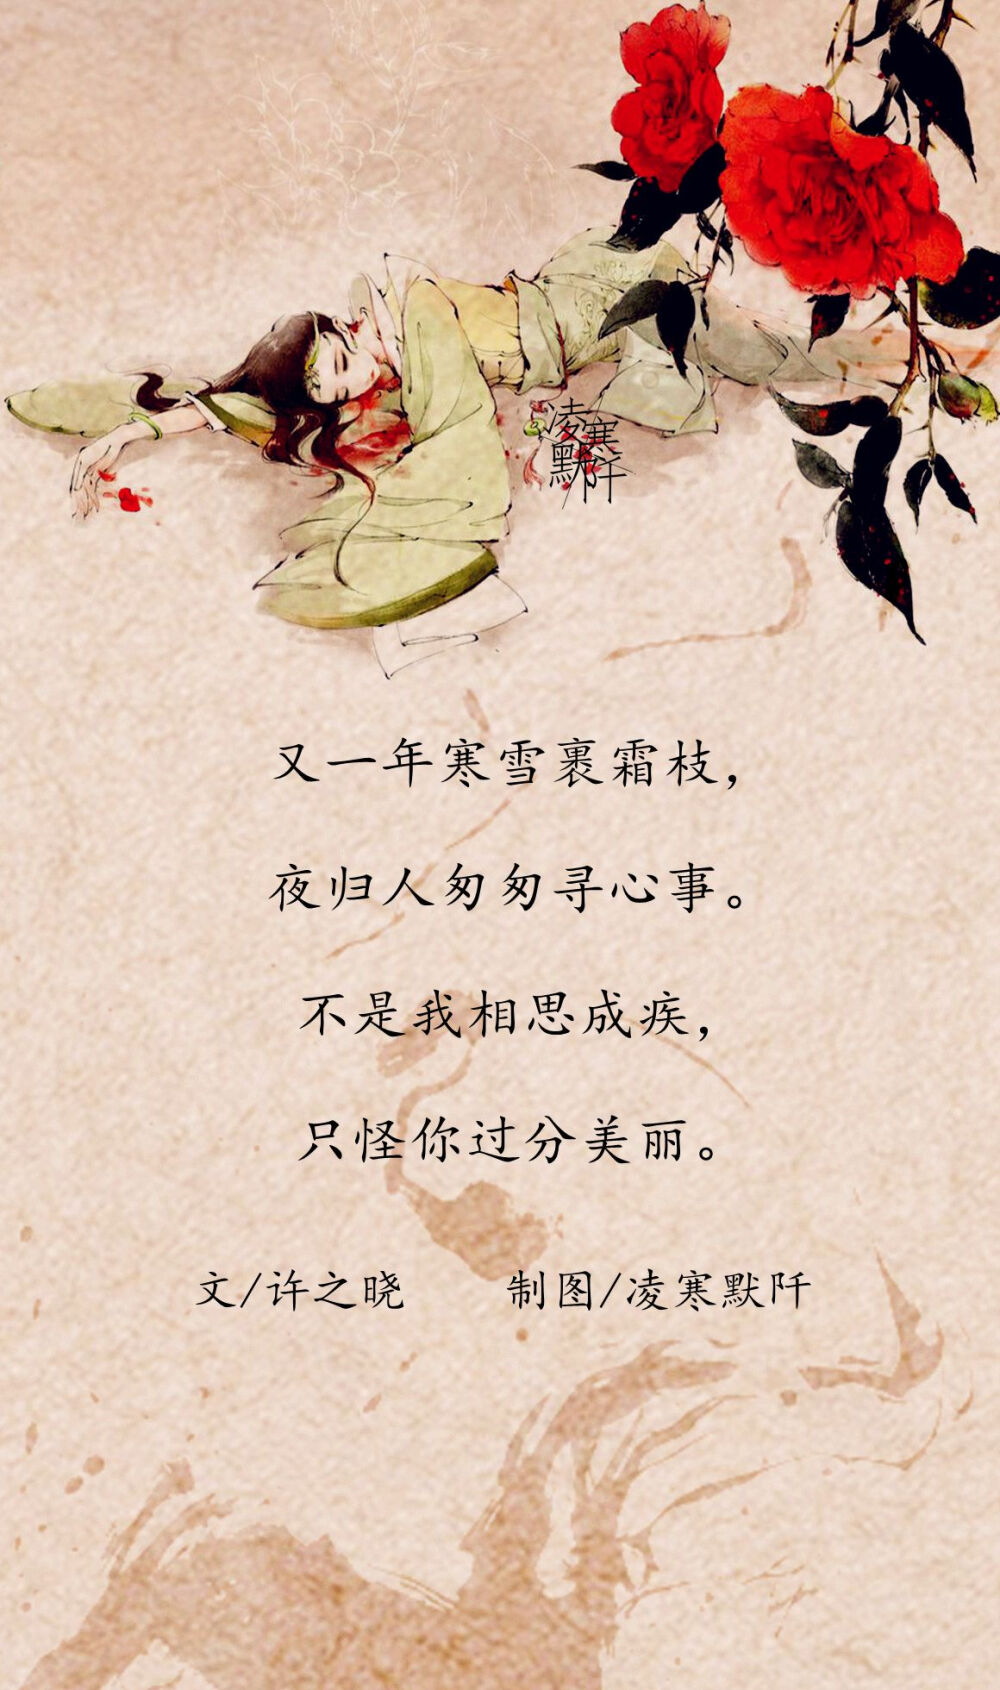 凌寒
默阡
又一年寒雪裹霜枝，
夜归人匆匆寻心事。
不是我相思成疾，
只怪你过分美丽。
文/许之晓 制图/凌寒默阡